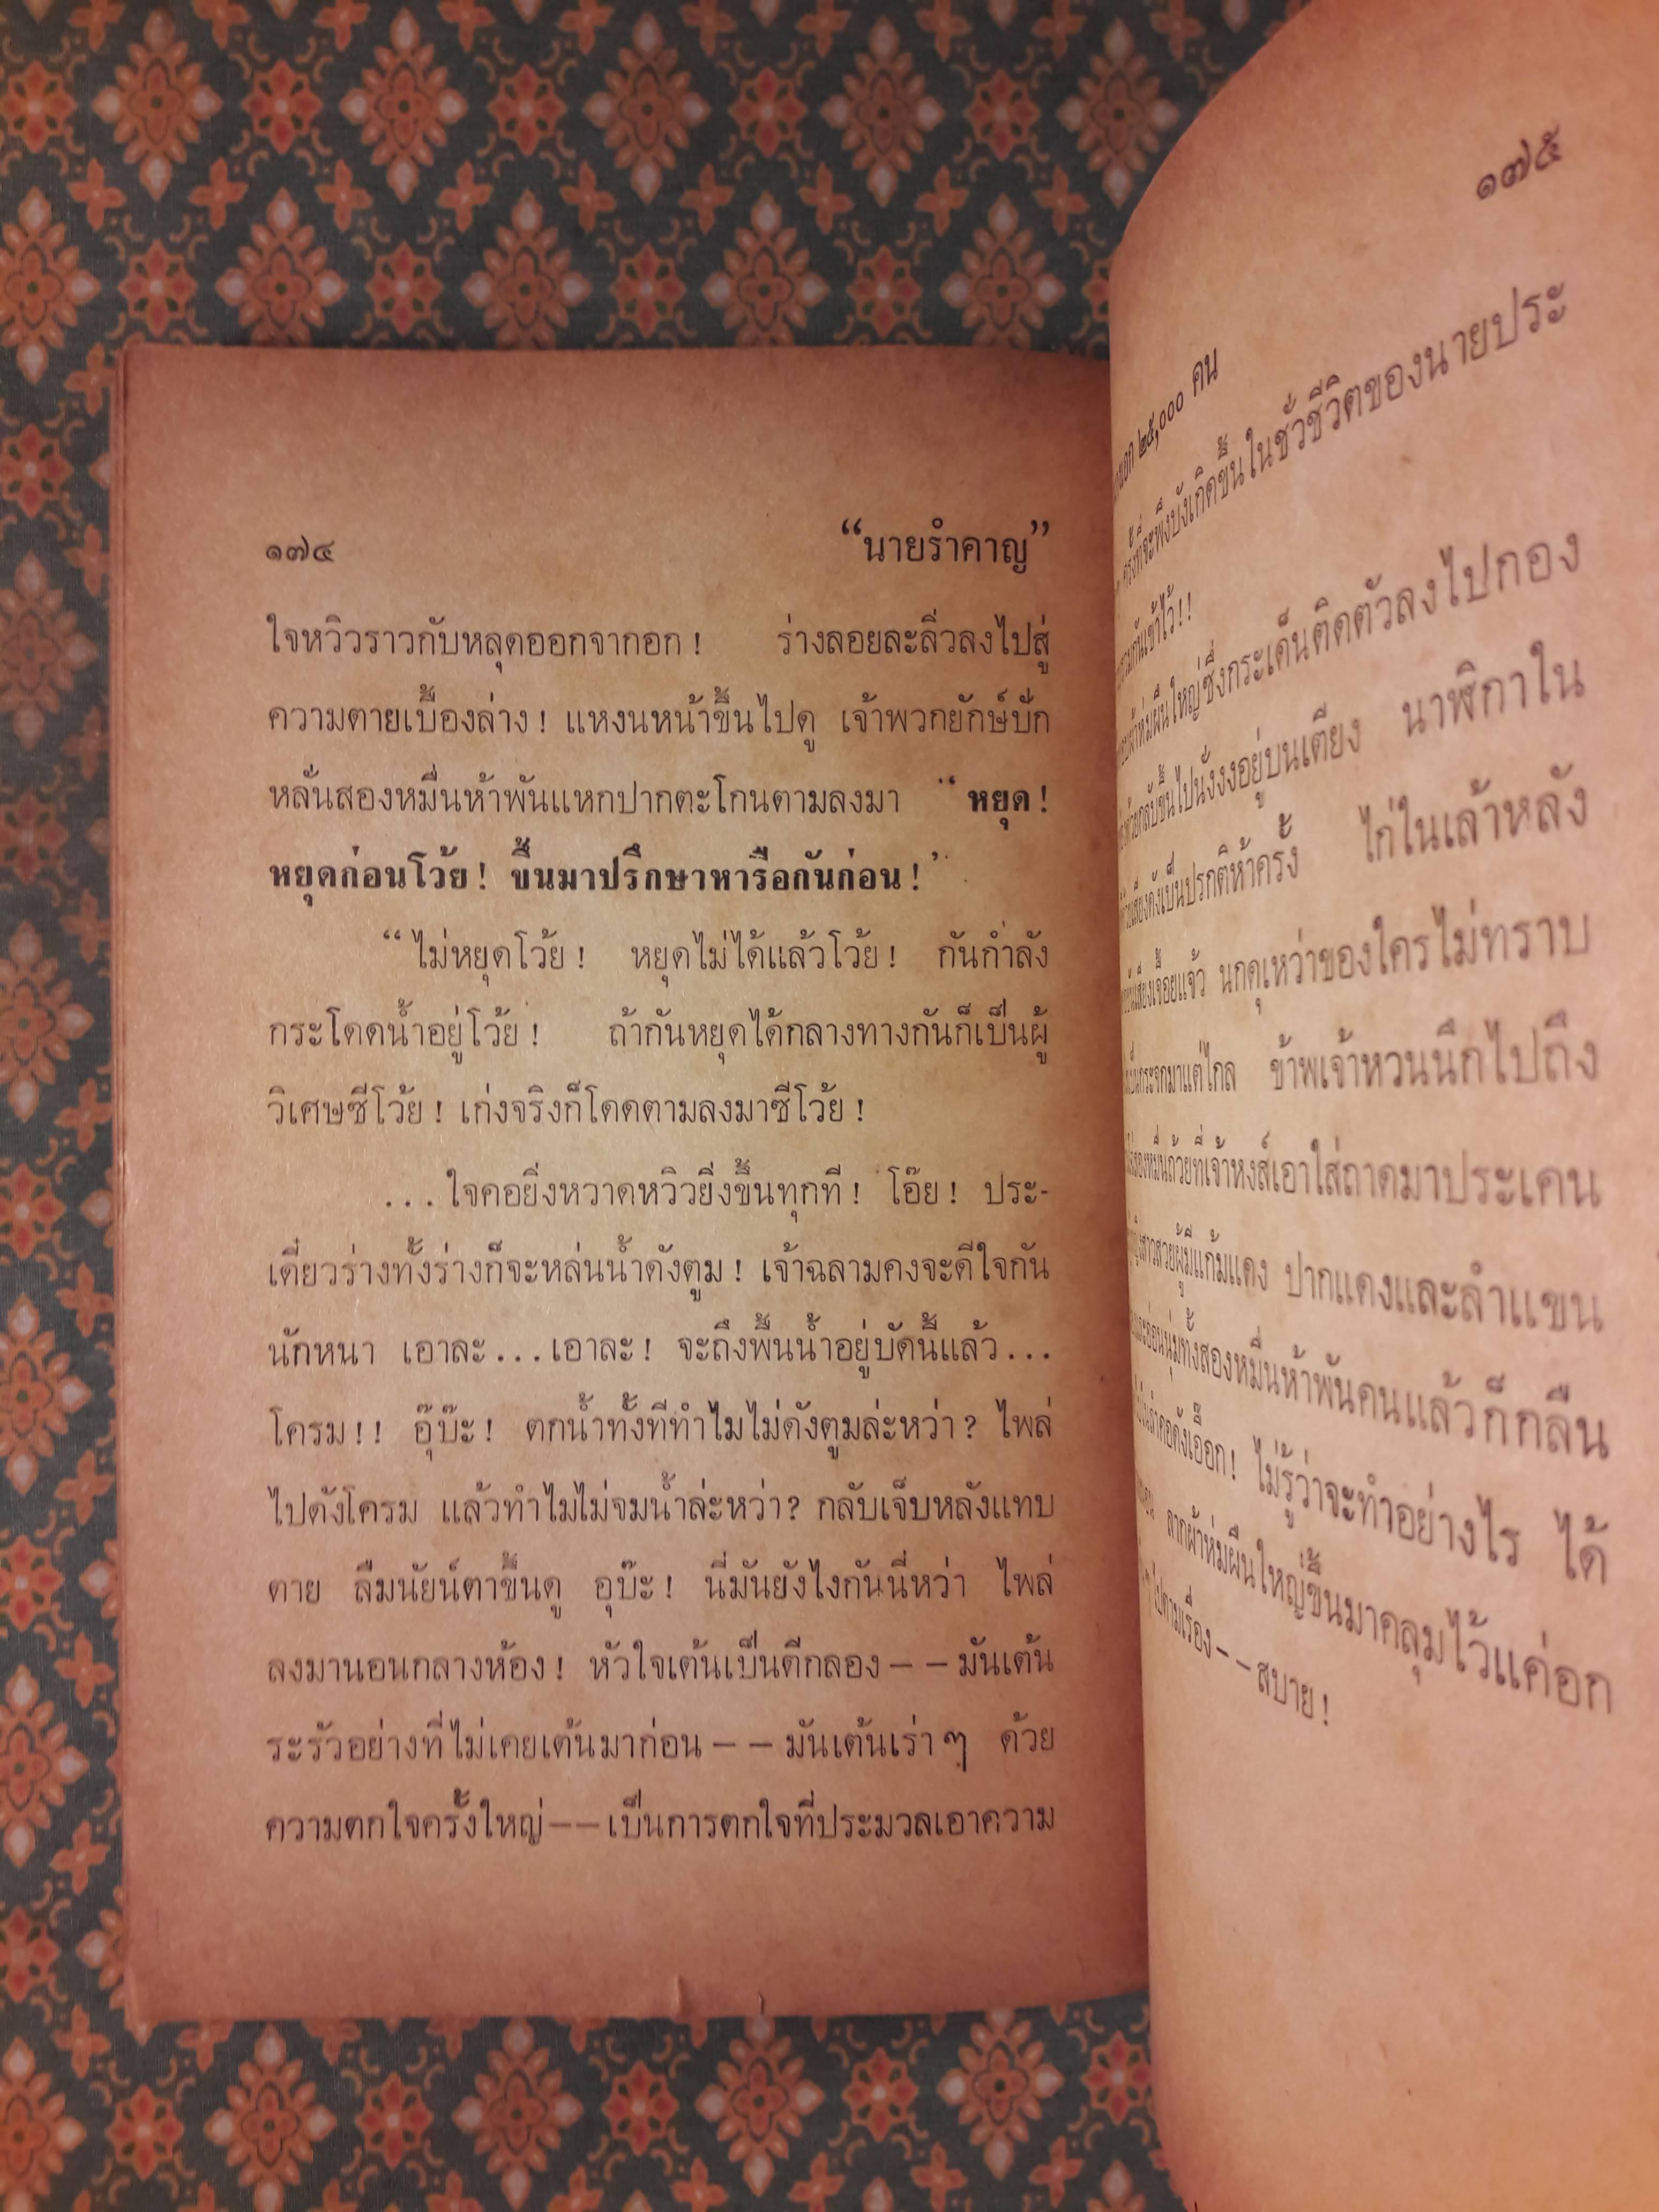 ๑๗๔ “นายรำคาญ”
ใจหวิวราวกับหลุดออกจากอก! ร่างลอยละลิ่วลงไปสู่
ความตายเบื้องล่าง! แหงนหน้าขึ้นไปดู เจ้าพวกยักษ์บัก
หลั่นสองหมื่นห้าพันแหกปากตะโกนตามลงมา “หยุด!
หยุดก่อนโว้ย! ขึ้นมาปรึกษาหารือกันก่อน!”
“ไม่หยุดโว้ย! หยุดไม่ได้แล้วโว้ย! กันกำลัง
กระโดดน้ำอยู่โว้ย! ถ้ากันหยุดได้กลางทางกันก็เป็นผู้
วิเศษซีโว้ย! เก่งจริงก็โดดตามลงมาซีโว้ย!
...ใจคอยิ่งหวาดหวิวยิ่งขึ้นทุกที! โอ๊ย! ประ-
เดี๋ยวร่างทั้งร่างก็จะหล่นน้ำดังตูม! เจ้าฉลามคงจะดีใจกัน
นักหนา เอาละ...เอาละ! จะถึงพื้นน้ำอยู่บัดนี้แล้ว...
โครม!! อุ๊บ๊ะ! ตกน้ำทั้งทีทำไมไม่ดังตูมล่ะหว่า? ไพล่
ไปดังโครม แล้วทำไมไม่จมน้ำล่ะหว่า? กลับเจ็บหลังแทบ
ตาย ลืมนัยน์ตาขึ้นดู อุบ๊ะ! นี่มันยังไงกันนี่หว่า ไพล่
ลงมานอนกลางห้อง! หัวใจเต้นเป็นตีกลอง--มันเต้น
ระรัวอย่างที่ไม่เคยเต้นมาก่อน--มันเต้นเร่าๆ ด้วย
ความตกใจครั้งใหญ่--เป็นการตกใจที่ประมวลเอาความ
๑๗๕
๒๕,๐๐๐ คน
ครั้งที่จะพึงบังเกิดขึ้นในชั่วชีวิตของนายประ
รวมกันเข้าไว้!!
ผ้าห่มผืนใหญ่ซึ่งกระเด็นติดตัวลงไปกอง
กลับขึ้นไปนั่งงงอยู่บนเตียง นาฬิกาใน
เสียงดังเป็นปรกติห้าครั้ง ไก่ในเล้าหลัง
เสียงเจื้อยแจ้ว นกดุเหว่าของใครไม่ทราบ
มาแต่ไกล ข้าพเจ้าหวนนึกไปถึง
สองหมื่นถ้วยที่เจ้าหงส์เอาใส่ถาดมาประเคน
สาวสวยผู้มีแก้มแดง ปากแดงและลำแขน
อ่อนนุ่มทั้งสองหมื่นห้าพันคนแล้วก็กลืน
ลำคอดังเอื๊อก! ไม่รู้ว่าจะทำอย่างไร ได้
ลากผ้าห่มผืนใหญ่ขึ้นมาคลุมไว้แค่อก
ไปตามเรื่อง--สบาย!